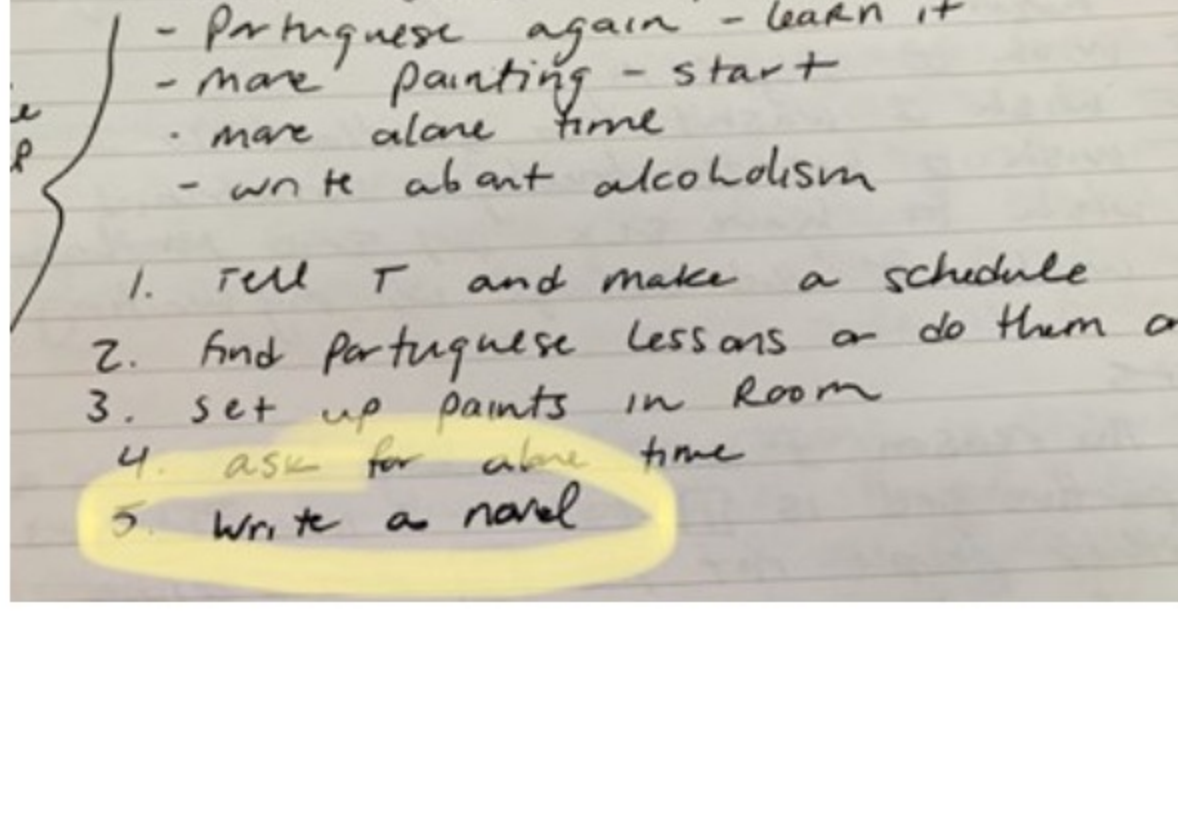 - Portuguese again - learn it
- more painting - start
- more alone time
- write about alcoholism
1. Tell T and make a schedule
2. find Portuguese lessons or do them
3. set up paints in Room
4. ask for alone time
5. write a novel